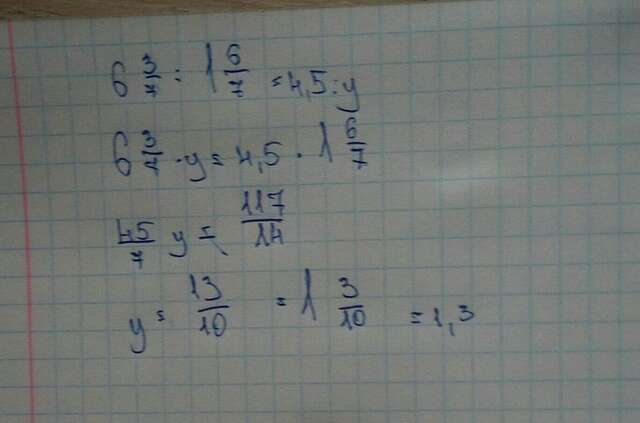 6 3/7 : 1 6/7 = 4,5 : y
6 3/7 · y = 4,5 · 1 6/7
45/7 y = 117/14
y = 13/10 = 1 3/10 = 1,3